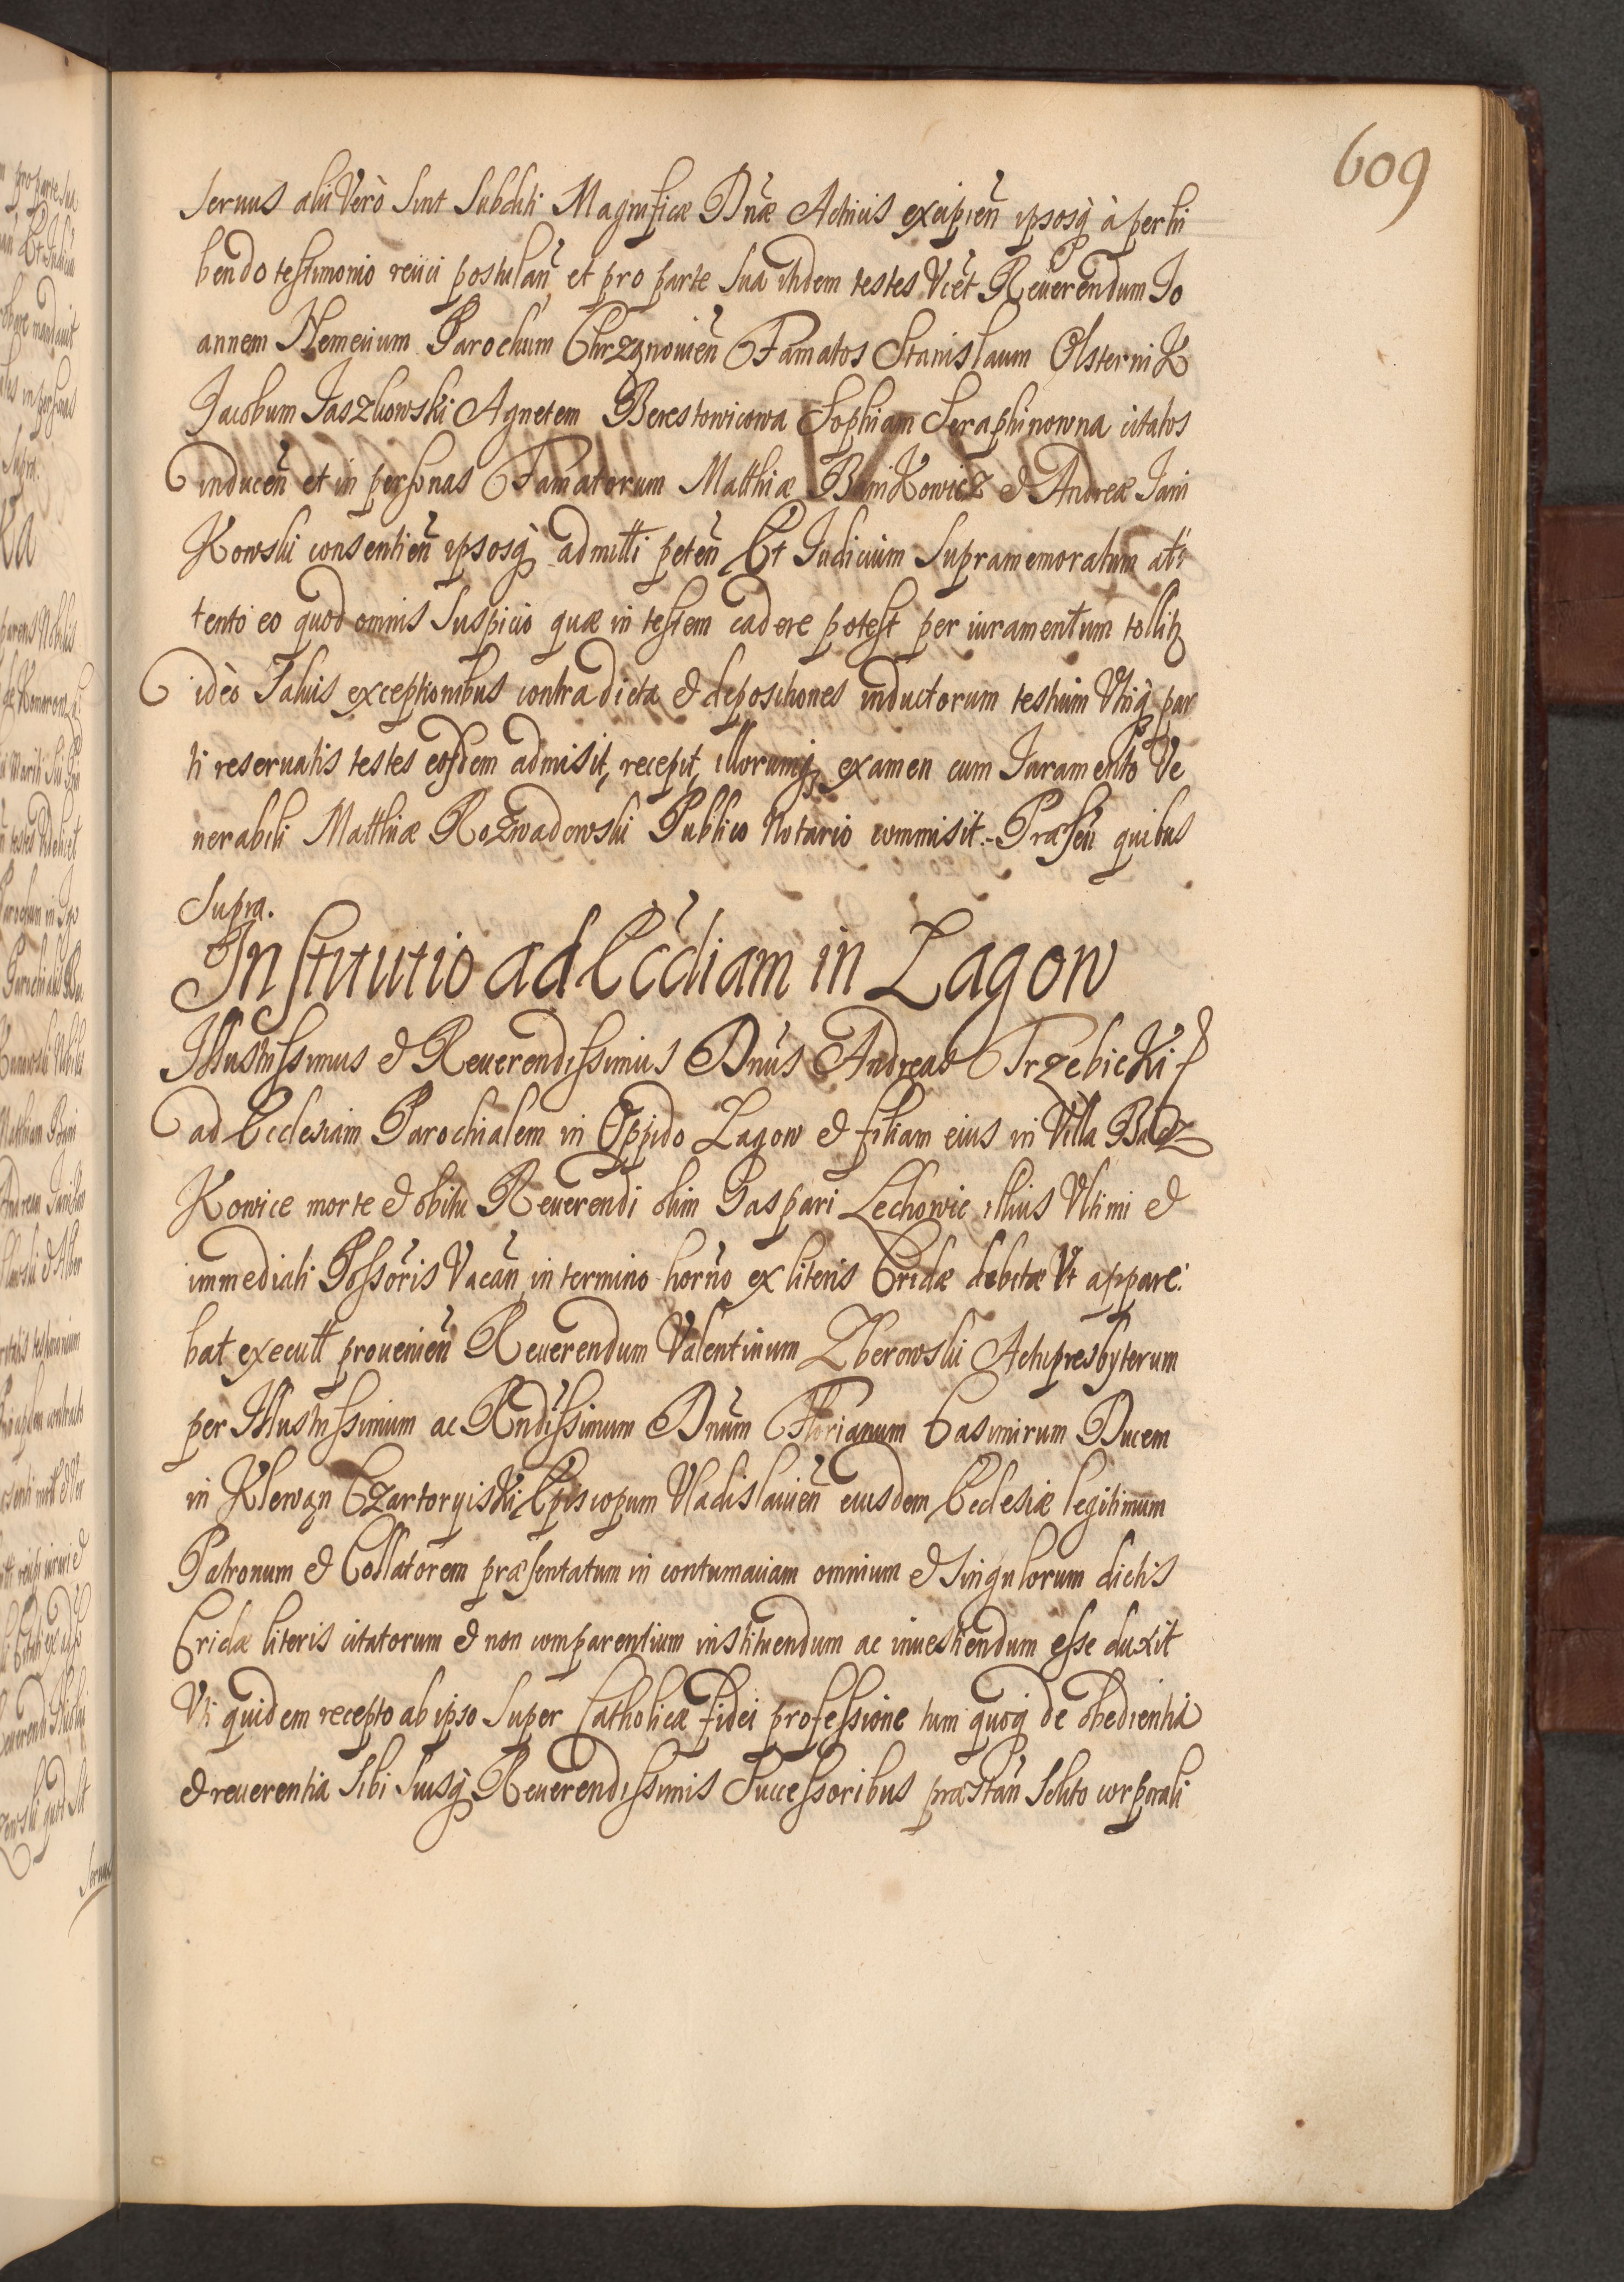 609
seruus alii Verò sint Subditi Magnificæ Dnæ Actricis excipien̄ ipsosq̀ à perhi
bendo testimonio reiici postulan̄ et pro parte sua itidem testes Vict Reuerendum Io
annem Nemeium Parochum Chrzanouien̄ Famatos Stanislaum Olsternik
Jacobum Jaszkowski Agnetem Berestowicowa Sophiam Seraphinowna citatos
inducen̄ et in personas Famatorum Matthiæ BaniKowicz & Andreæ Jani
Kowski consentien̄ ipsosq̀ admitti peten̄ Et Iudicium Supramemoratum at
tento eo quod omnis Suspicio quæ in testem cadere potest per iuramentum tollit
ideò Saluis exceptionibus contra dicta & depositiones inductorum testium Vtriq̀ par
ti reseruatis testes eosdem admisit, recepit, illorumq̀ examen cum Iuramento Ve
nerabili Matthiæ Rozwadowski Publico Notario commisit.- Præsen̄ quibus
Supra.
Institutio ad Eccliam in Lagow
Illustrissimus & Reuerendissimus Dnus Andreas TrzebicKi
ad Ecclesiam Parochialem in Oppido Lagow & filiam eius in Villa Bacz
Kowice morte & obitu Reuerendi olim Gaspari Lechowic illius Vltimi &
immediati Possoris Vacan̄ in termino horno ex literis Cridæ debitæ Vt appare
bat executt prouenien̄ Reuerendum Valentinum Zberowski Archipresbyterum
per Illustrissimum ac Rndissimum Dnum Florianum Casimirum Ducem
in Klewan CzartoryisKi Episcopum Vladislauien̄ eiusdem Ecclesiæ legitimum
Patronum & Collatorem præsentatum in contumaciam omnium & singulorum dictis
Cridæ literis citatorum & non comparentium instituendum ac inuestiendum esse duxit
Vti quidem recepto ab ipso Super Catholicæ fidei professione tum quoq̀ de obedientia
& reuerentia Sibi Suisq̀ Reuerendissimis Successoribus præstan̄ Solito corporali